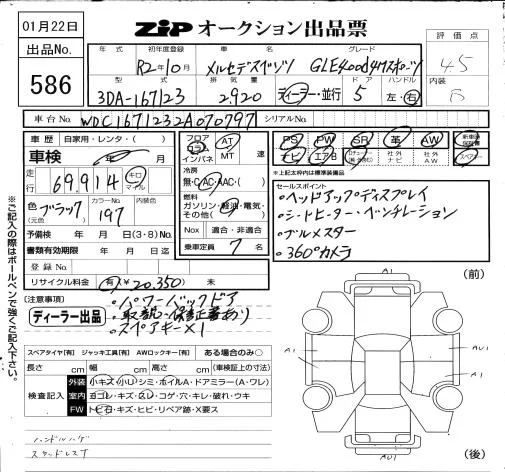 01月22日
ZIP オークション出品票
出品No.
586
評価点
4.5
内装
B
年式 初年度登録 車名 グレード
R2年10月 メルセデスベンツ GLE400d4Mスポーツ
型式 排気量 ドア ハンドル
3DA-167123 2920 ディーラー・並行 5 左・右
車台No. WDC1671232A070797 シリアルNo.
車歴 自家用・レンタ・( )
車検 年 月
走行 69,914 キロ マイル
色 ブラック カラーNo. 197 内装色
(元色)
予備検 年 月 日(3・8)No.
書類有効期限 年 月 日迄
登録No.
リサイクル料金 有(¥20,350) 未
フロア コラム インパネ AT MT 速
冷房 無・C・AC・AAC・( )
燃料 ガソリン・軽油・電気・その他( )
Nox 適合・非適合
乗車定員 7 名
PS PW SR 革 AW 新車時保証書
ナビ エアB 社外ナビ 社外AW スペアキー
*上記太枠内は標準装備品
セールスポイント
・ヘッドアップディスプレイ
・シートヒーター・ベンチレーション
・ブルメスター
・360°カメラ
(注意事項)
ディーラー出品
・パワーバックドア
・取説・保証書あり
・スペアキー×1
スペアタイヤ[有] ジャッキ工具[有] AWロックキー[有] ある場合のみ○
長さ cm 幅 cm 高さ cm (車検証上の寸法)
検査記入 外装 小キズ・小U・シミ・ホイルA・ドアミラー(A・ワレ)
室内 ヨゴレ・キズ・スレ・コゲ・穴・キレ・破れ・ウキ
FW トビ石・キズ・ヒビ・リペア跡・X要ス
ハンドルハゲ
スタッドレスT
※ご記入の際はボールペンで強くご記入下さい。
(前)
A1
A1
AU1
A1
A1
(後)